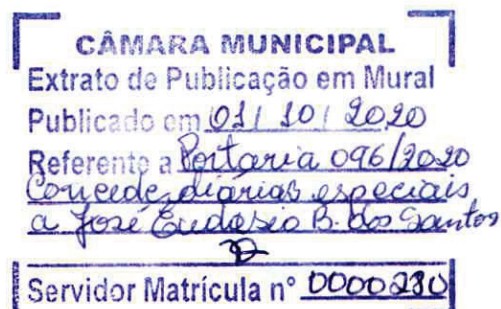 CÂMARA MUNICIPAL
Extrato de Publicação em Mural
Publicado em 01/10/2020
Referente a Portaria 096/2020
Concede diárias especiais
a José Eudásio B. dos Santos
Servidor Matrícula nº 0000230